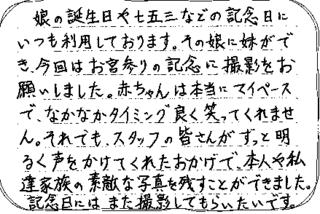 娘の誕生日や七五三などの記念日に
いつも利用しております。その娘に妹がで
き、今回はお宮参りの記念に撮影をお
願いしました。赤ちゃんは本当にマイペース
で、なかなかタイミング良く笑ってくれませ
ん。それでも、スタッフの皆さんがずっと明
るく声をかけてくれたおかげで、本人や私
達家族の素敵な写真を残すことができました。
記念日にはまた撮影してもらいたいです。